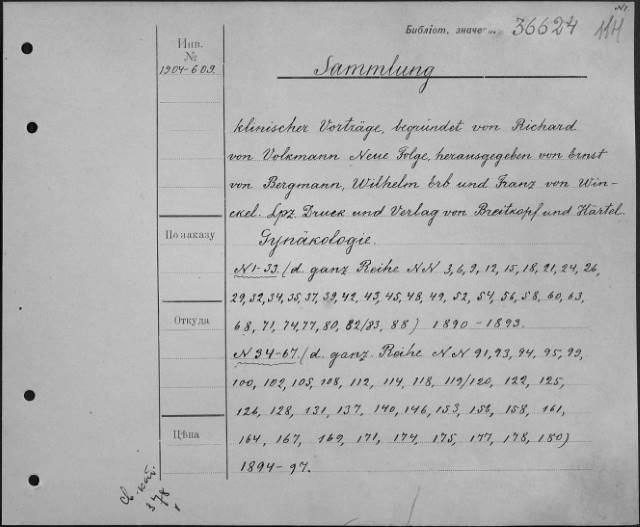 №1.
Библіот. значе... 36624
Инв.
№
1904-609.
Sammlung
klinischer Vorträge, begründet von Richard
von Volkmann Neue Folge, herausgegeben von Ernst
von Bergmann, Wilhelm Erb und Franz von Win-
ckel. Lpz. Druck und Verlag von Breitkopf und Härtel.
По заказу
Gynäkologie.
N 1-33. (d. ganz Reihe NN 3, 6, 9, 12, 15, 18, 21, 24, 26,
29, 32, 34, 35, 37, 39, 42, 43, 45, 48, 49, 52, 54, 56, 58, 60, 63,
Откуда
68, 71, 74, 77, 80, 82/83, 88) 1890-1893.
N 34-67. (d. ganz. Reihe NN 91, 93, 94, 95, 99,
100, 102, 105, 108, 112, 114, 118, 119/120, 122, 125,
126, 128, 131, 137, 140, 146, 153, 158, 161,
Цѣна
164, 167, 169, 171, 174, 175, 177, 178, 180)
1894-97.
См. кат.
378